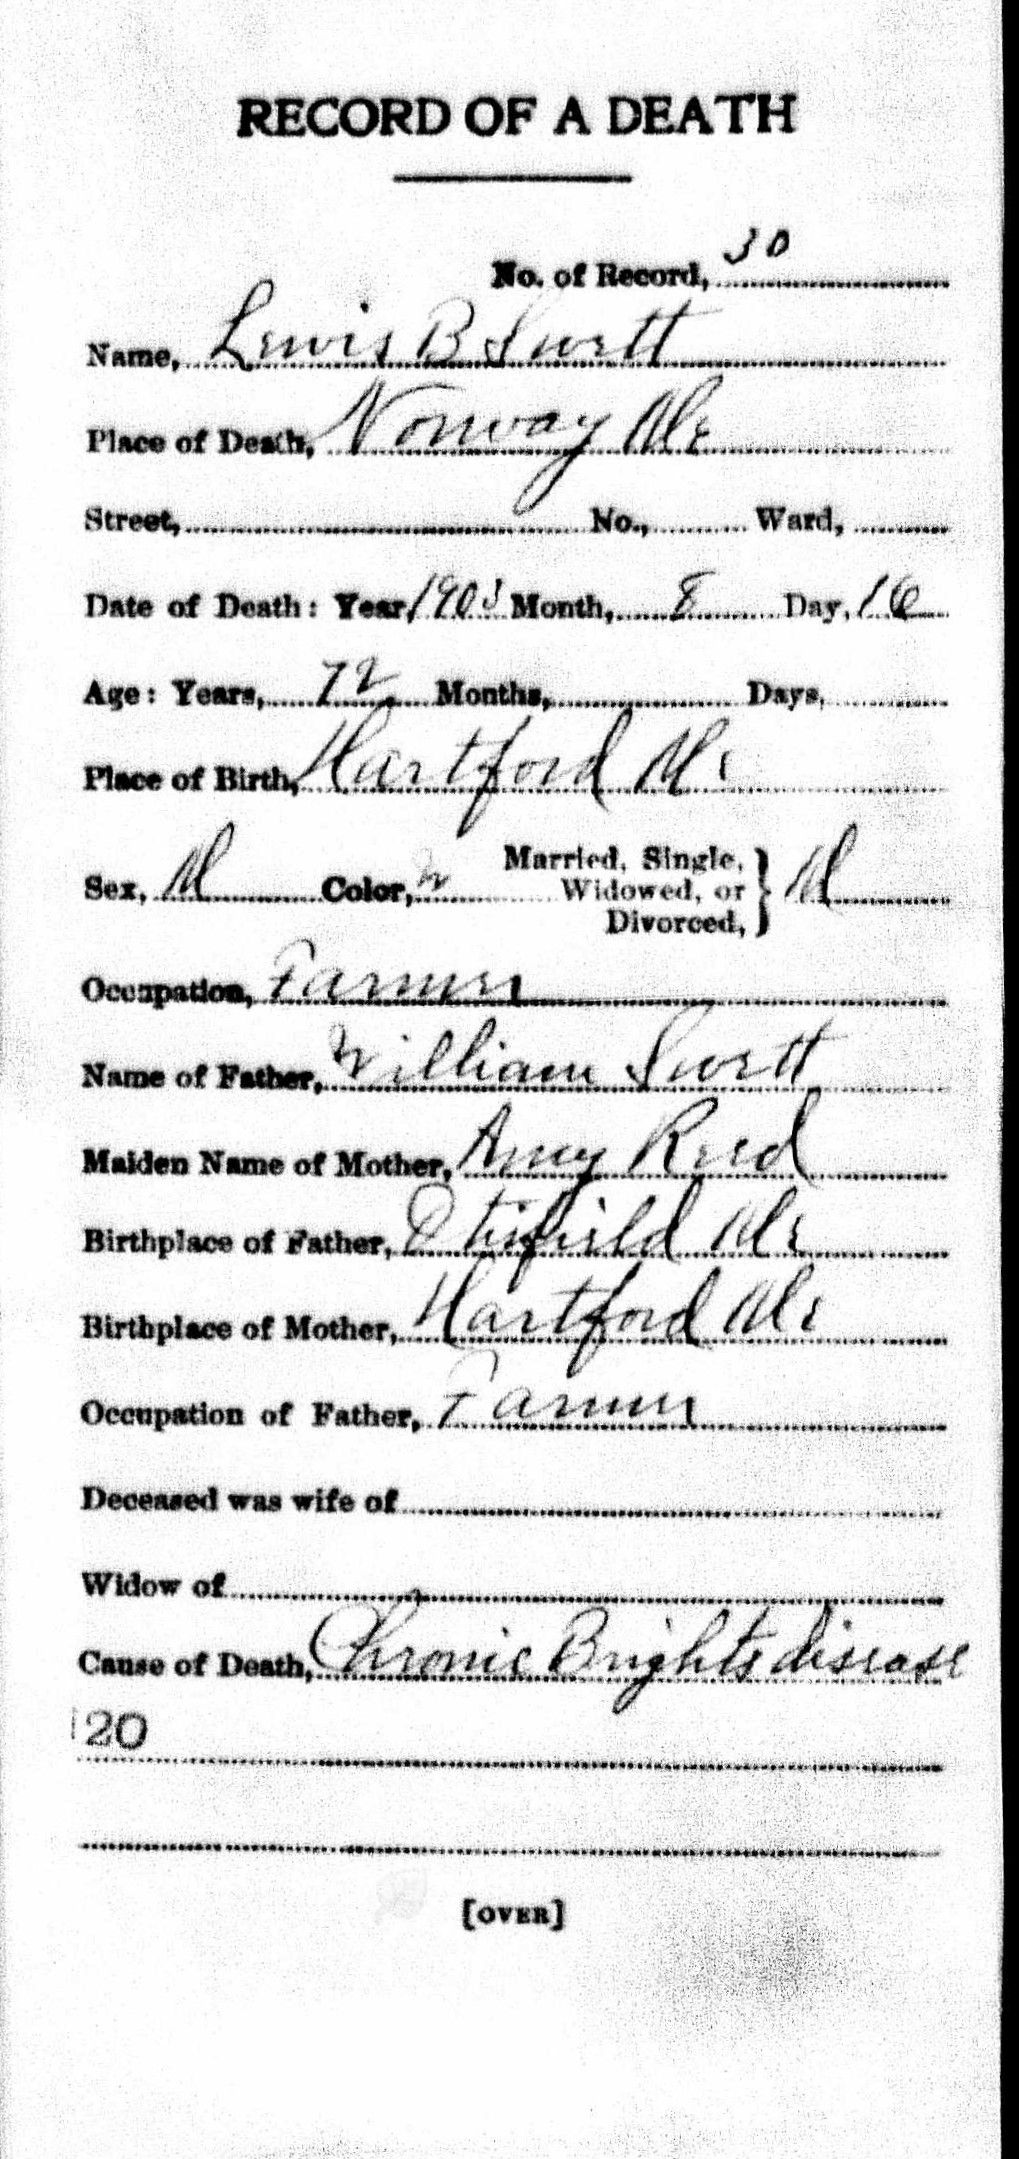 RECORD OF A DEATH
No. of Record, 30
Name, Lewis B Swett
Place of Death, Norway Me
Street, No., Ward,
Date of Death: Year, 1903 Month, 8 Day, 16
Age: Years, 72 Months, Days,
Place of Birth, Hartford Me
Sex, M Color, W Married, Single, Widowed, or Divorced, } M
Occupation, Farmer
Name of Father, William Swett
Maiden Name of Mother, Amy Reed
Birthplace of Father, Otisfield Me
Birthplace of Mother, Hartford Me
Occupation of Father, Farmer
Deceased was wife of
Widow of
Cause of Death, Chronic Brights disease
120
[OVER]